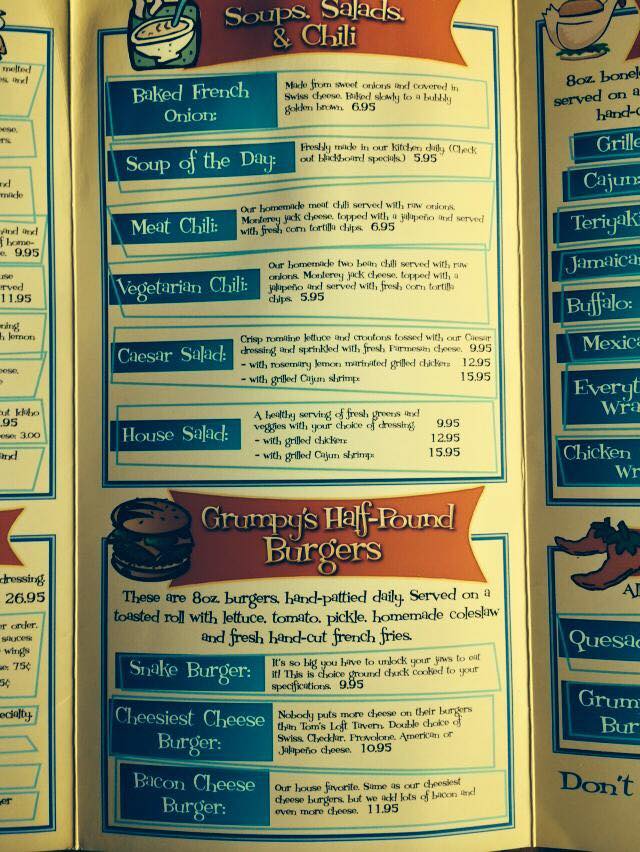 Soups, Salads,
& Chili
Baked French
Onion:
Made from sweet onions and covered in
Swiss cheese. Baked slowly to a bubbly
golden brown. 6.95
Soup of the Day:
Freshly made in our kitchen daily. (Check
out blackboard specials.) 5.95
Meat Chili:
Our homemade meat chili served with raw onions,
Monterey jack cheese, topped with a jalapeño and served
with fresh corn tortilla chips. 6.95
Vegetarian Chili:
Our homemade two bean chili served with raw
onions, Monterey jack cheese, topped with a
jalapeño and served with fresh corn tortilla
chips. 5.95
Caesar Salad:
Crisp romaine lettuce and croutons tossed with our Caesar
dressing and sprinkled with fresh Parmesan cheese. 9.95
- with rosemary lemon marinated grilled chicken: 12.95
- with grilled Cajun shrimp: 15.95
House Salad:
A healthy serving of fresh greens and
veggies with your choice of dressing. 9.95
- with grilled chicken: 12.95
- with grilled Cajun shrimp: 15.95
Grumpy's Half-Pound
Burgers
These are 8oz. burgers, hand-pattied daily. Served on a
toasted roll with lettuce, tomato, pickle, homemade coleslaw
and fresh hand-cut french fries.
Snake Burger:
It's so big you have to unlock your jaws to eat
it! This is choice ground chuck cooked to your
specifications. 9.95
Cheesiest Cheese
Burger:
Nobody puts more cheese on their burgers
than Tom's Loft Tavern. Double choice of
Swiss, Cheddar, Provolone, American or
Jalapeño cheese. 10.95
Bacon Cheese
Burger:
Our house favorite. Same as our cheesiest
cheese burgers, but we add lots of bacon and
even more cheese. 11.95
melted
and
made
and
9.95
11.95
lemon
Idaho
.95
3.00
and
dressing.
26.95
order.
sauces:
wings
75¢
8oz.
served on a
Cajun:
Jamaica
Buffalo:
Mexica
Wra
Chicken
Wr
Quesad
Grum
Bur
Don't